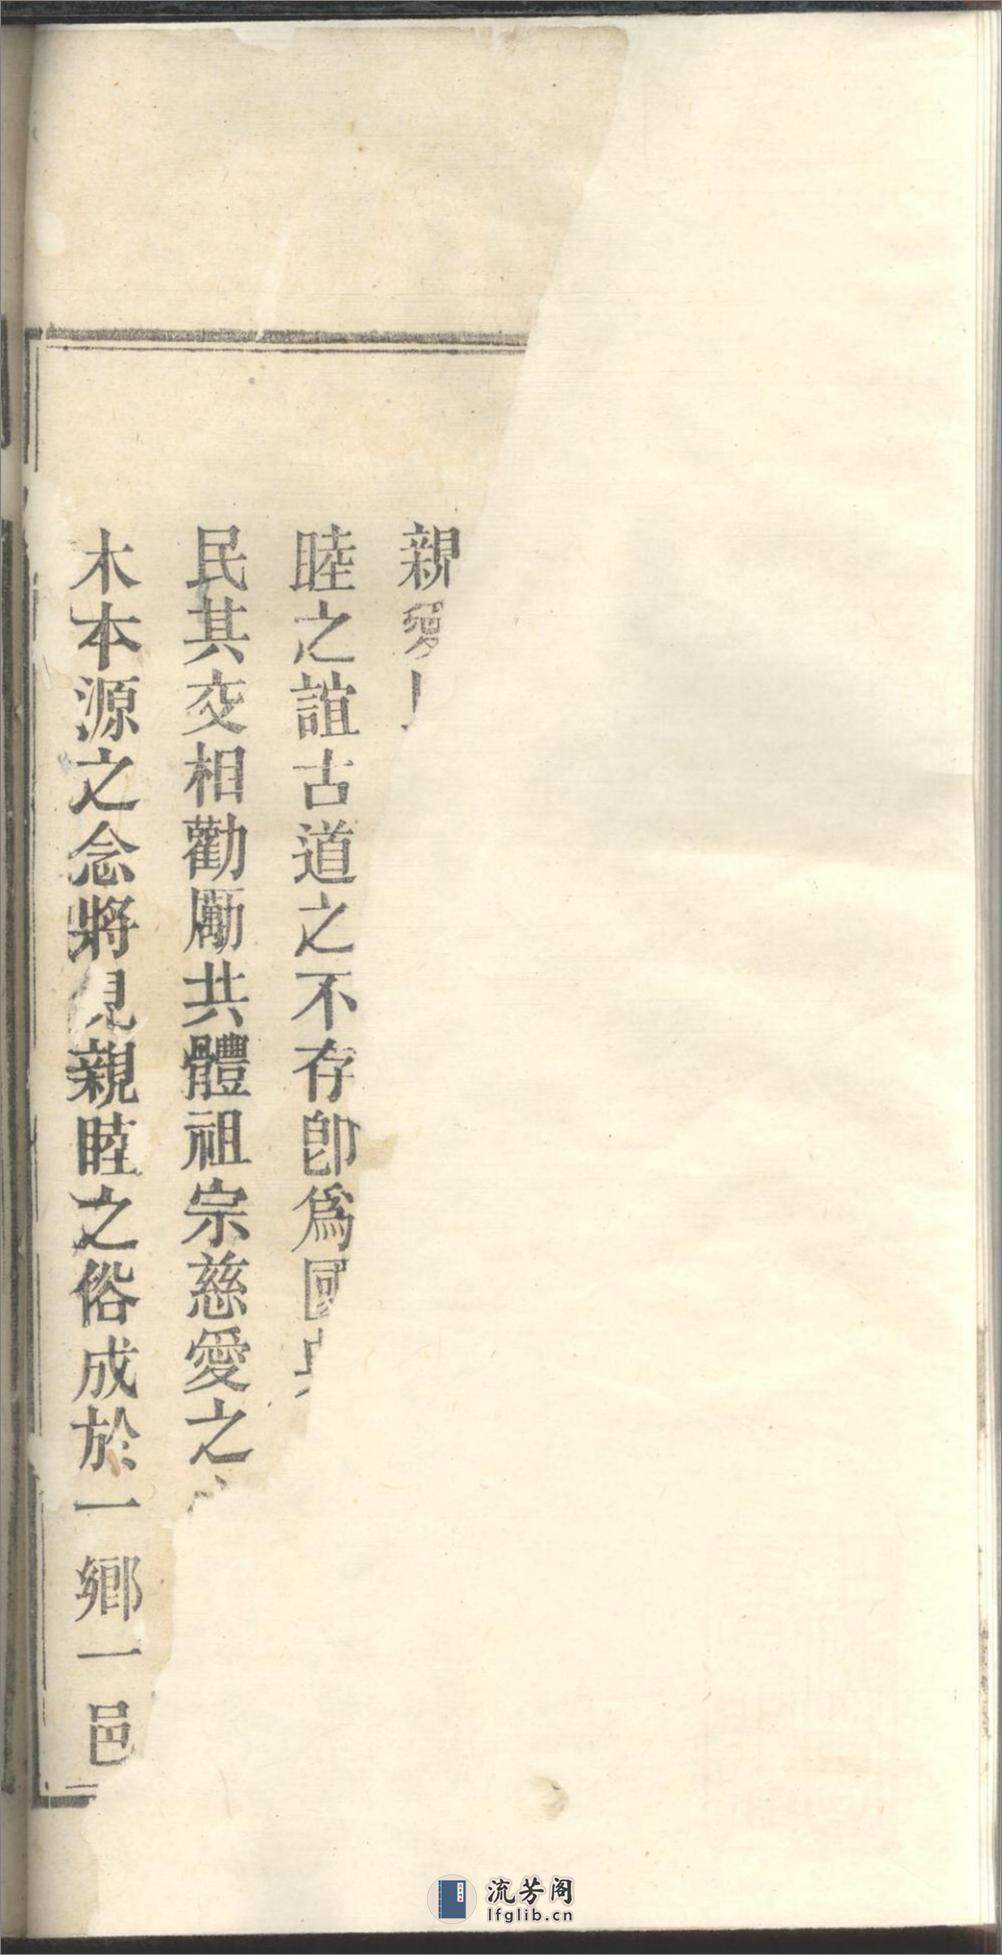 親愛
睦之誼古道之不存即為國
民其交相勸勵共體祖宗慈愛之
木本源之念將見親睦之俗成於一鄉一邑
流芳阁
lfglib.cn